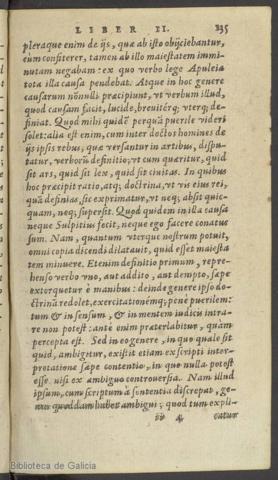 LIBER II. 235
pleraque enim de ijs, quæ ab isto obijciebantur,
cum confiterer, tamen ab illo maiestatem immi-
nutam negabam: ex quo verbo lege Apuleia
tota illa causa pendebat. Atque in hoc genere
causarum nónnulli præcipiunt, vt verbum illud,
quod causam facit, lucidè, breuitérq; vterq; de-
finiat. Quod mihi quidē perquā puerile videri
solet: alia est enim, cum inter doctos homines de
ijs ipsis rebus, quæ versantur in artibus, dispu-
tatur, verborū definitio; vt cum quæritur, quid
sit ars, quid sit lex, quid sit ciuitas. In quibus
hoc præcipit ratio, atq; doctrina, vt vis eius rei,
quā definias, sic exprimatur, vt neq; absit quic-
quam, neq; supersit. Quod quidem in illa causa
neque Sulpitius fecit, neque ego facere conatus
sum. Nam, quantum vterque nostrum potuit,
omni copia dicendi dilatauit, quid esset maiesta
tem minuere. Etenim definitio primum, repre-
henso verbo vno, aut addito, aut dempto, sæpe
extorquetur è manibus: deinde genere ipso do-
ctrinā redolet, exercitationémq; penè puerilem:
tum & in sensum, & in mentem iudicis intra-
re non potest: antè enim præterlabitur, quàm
percepta est. Sed in eo genere, in quo quale sit
quid, ambigitur, existit etiam ex scripti inter-
pretatione sæpe contentio, in quo nulla potest
esse nisi ex ambiguo controuersia. Nam illud
ipsum, cum scriptum à sententia discrepat, ge-
nus quoddam habet ambigui; quod tum expli-
catur
Biblioteca de Galicia